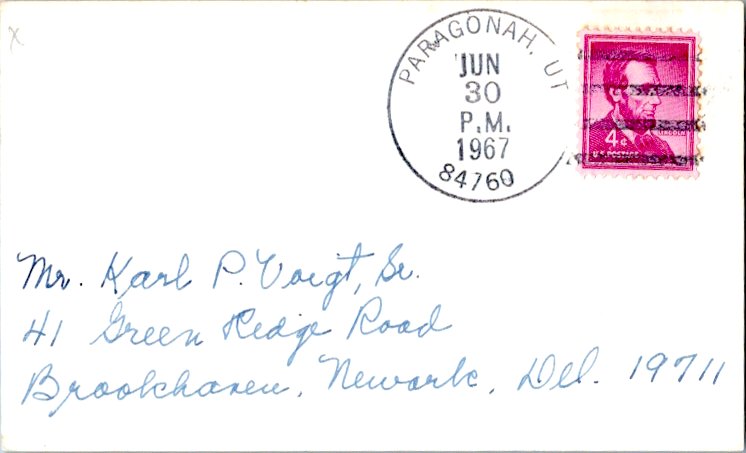 x
PARAGONAH, UT
JUN
30
P.M.
1967
84760
LINCOLN
4¢
U.S. POSTAGE
Mr. Karl P. Voigt, Sr.
41 Green Ridge Road
Brookhaven, Newark, Del. 19711